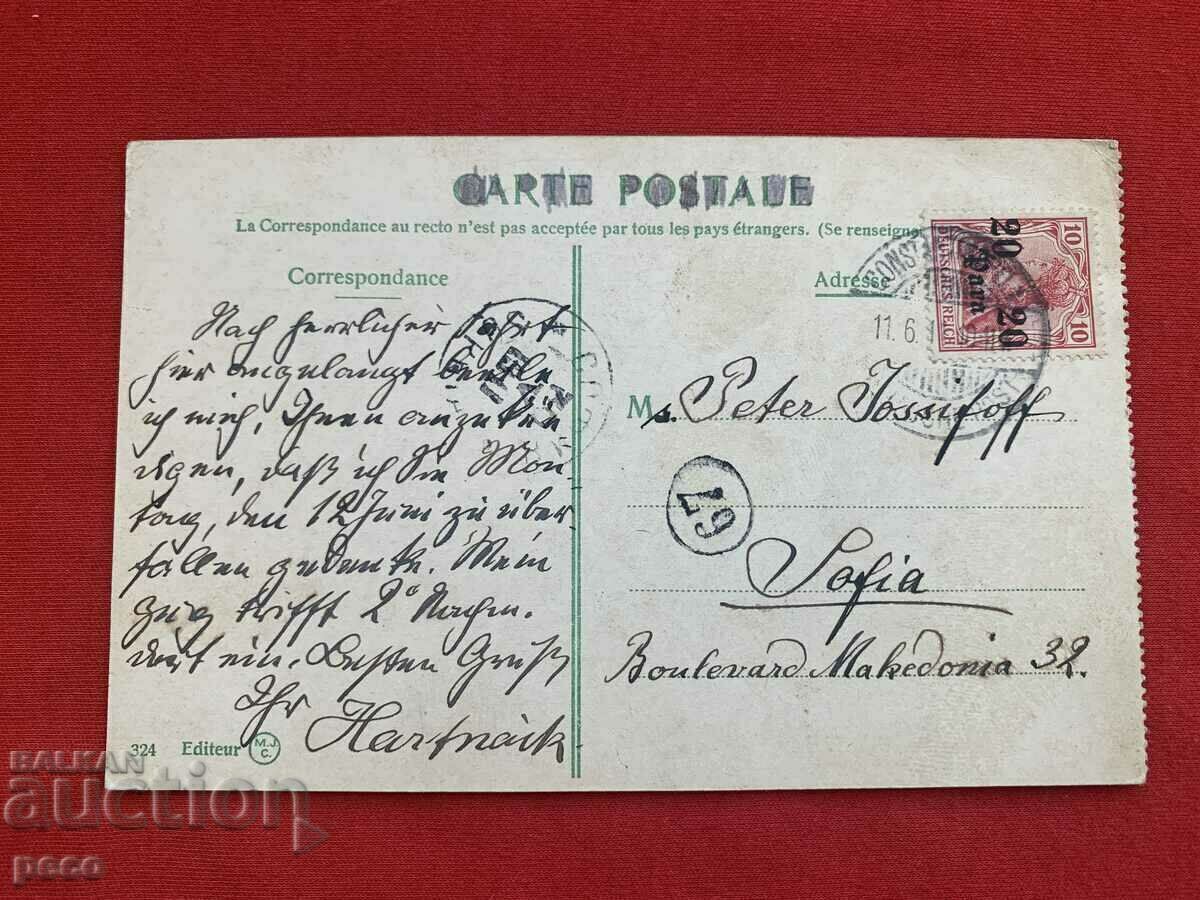 CARTE POSTALE
La Correspondance au recto n'est pas acceptée par tous les pays étrangers. (Se renseigne
Correspondance
Adresse
Nach herrlicher Fahrt
hier angelangt beeile
ich mich, Ihnen anzukün
digen, daß ich Sie Mon-
tag, den 12 Juni zu über-
fallen gedenke. Mein
Zug trifft 2° Nachm.
dort ein. Besten Gruß
Ihr Hartnack.
324 Editeur M.J.C.
20 Para 20
10 10
DEUTSCHES REICH
CONST
11.6.
Ms. Peter Jossifoff
67
Sofia
Boulevard Makedonia 32.
BALKAN
auction
peco